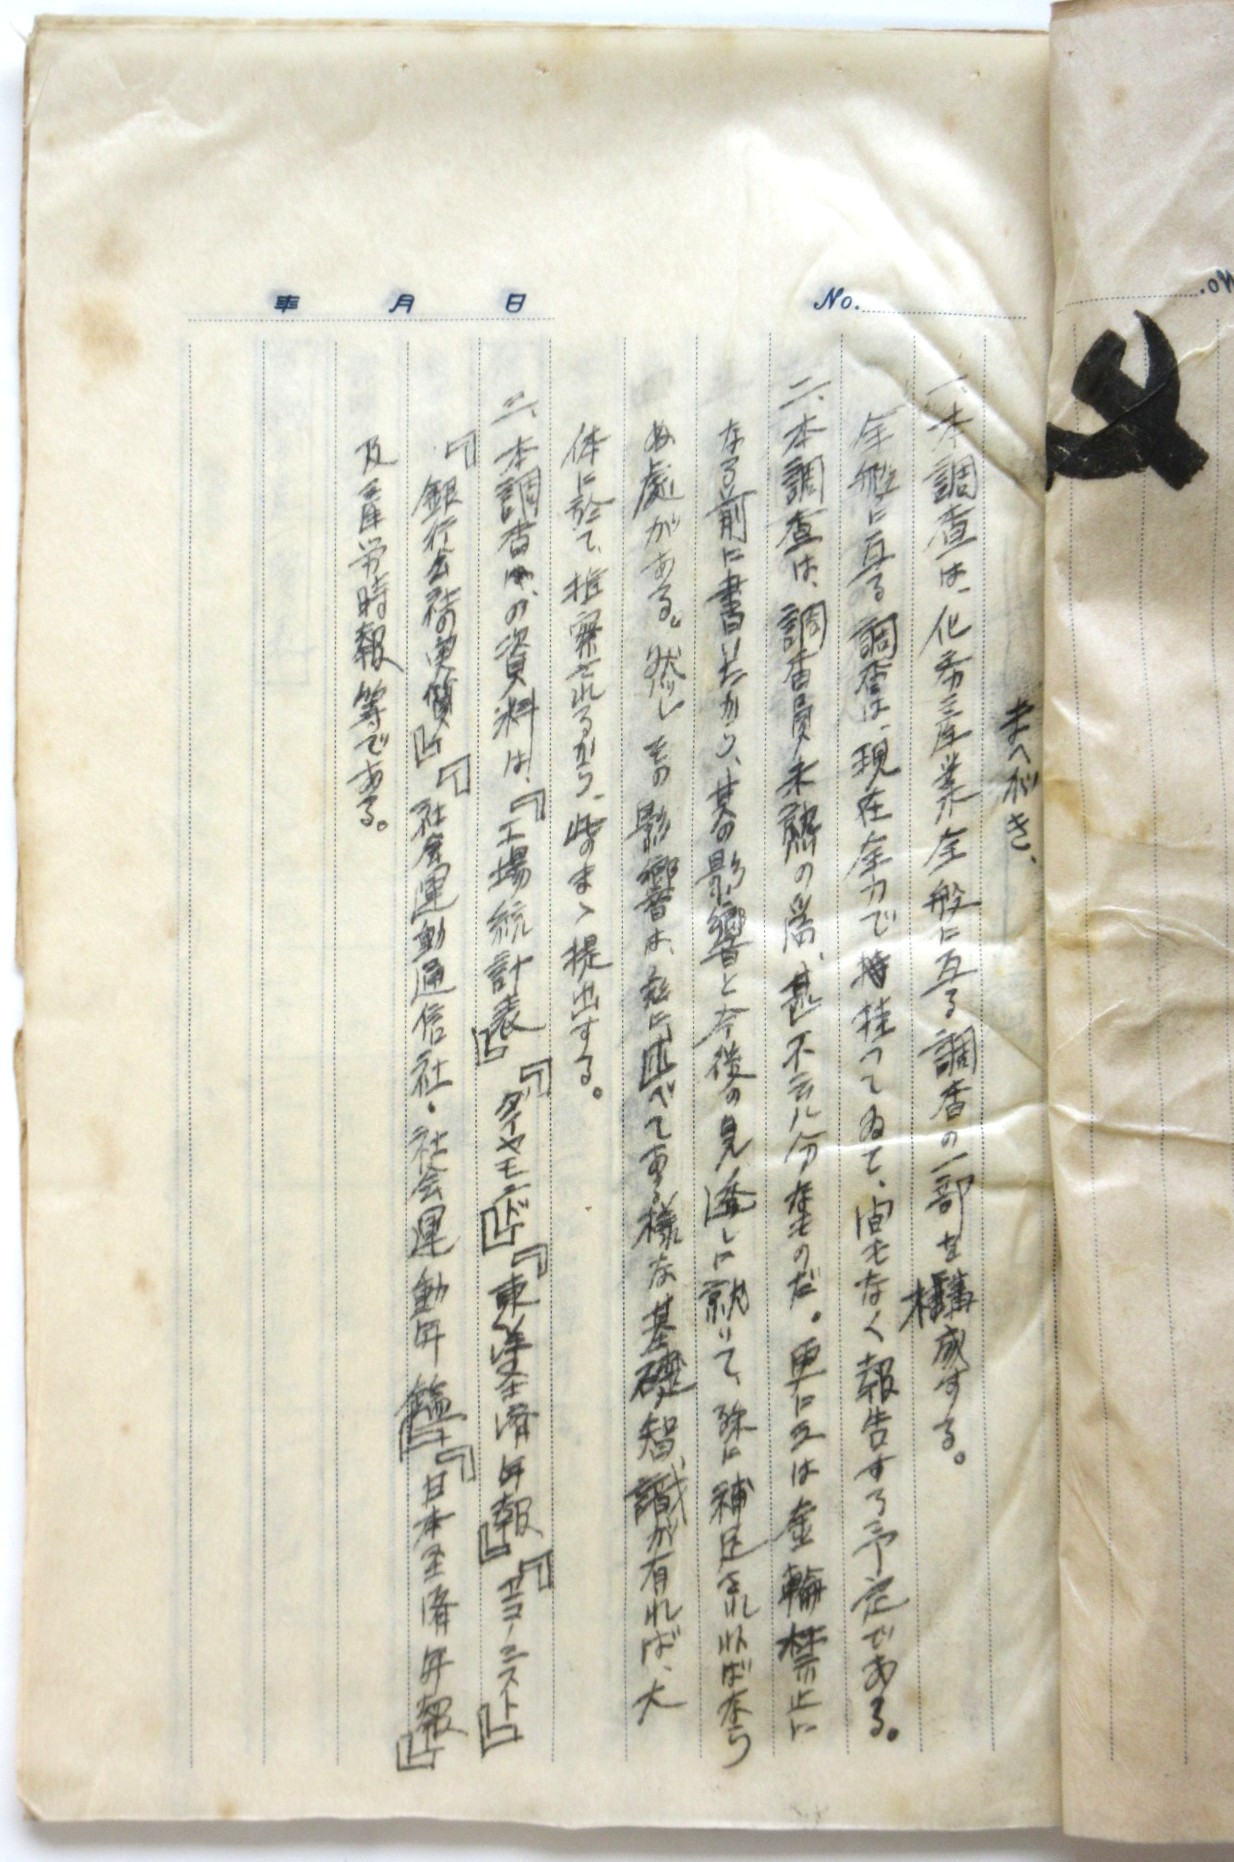 No.
年 月 日
まへがき、
一、本調査は、化学産業全般に亙る調査の一部を構成する。
全般に亙る調査は、現在全力で持続してゐて、間もなく報告する予定である。
二、本調査は、調査員未熟の為、甚不充分なものだ。更に又は金輸禁止に
なる前に書いたから、其の影響と今後の見透しに就いて、弥に補足されればなら
ぬ處がある。然し その影響は、茲に述べて有る様な基礎智識が有れば、大
体に於て、推察されるから、此のまゝ提出する。
三、本調査の資料は、『工場統計表』『ダイヤモンド』『東洋経済年報』『エコノミスト』
『銀行会社の実価』『社会運動通信社・社会運動年鑑』『日本経済年報』
及産労時報等である。
No.